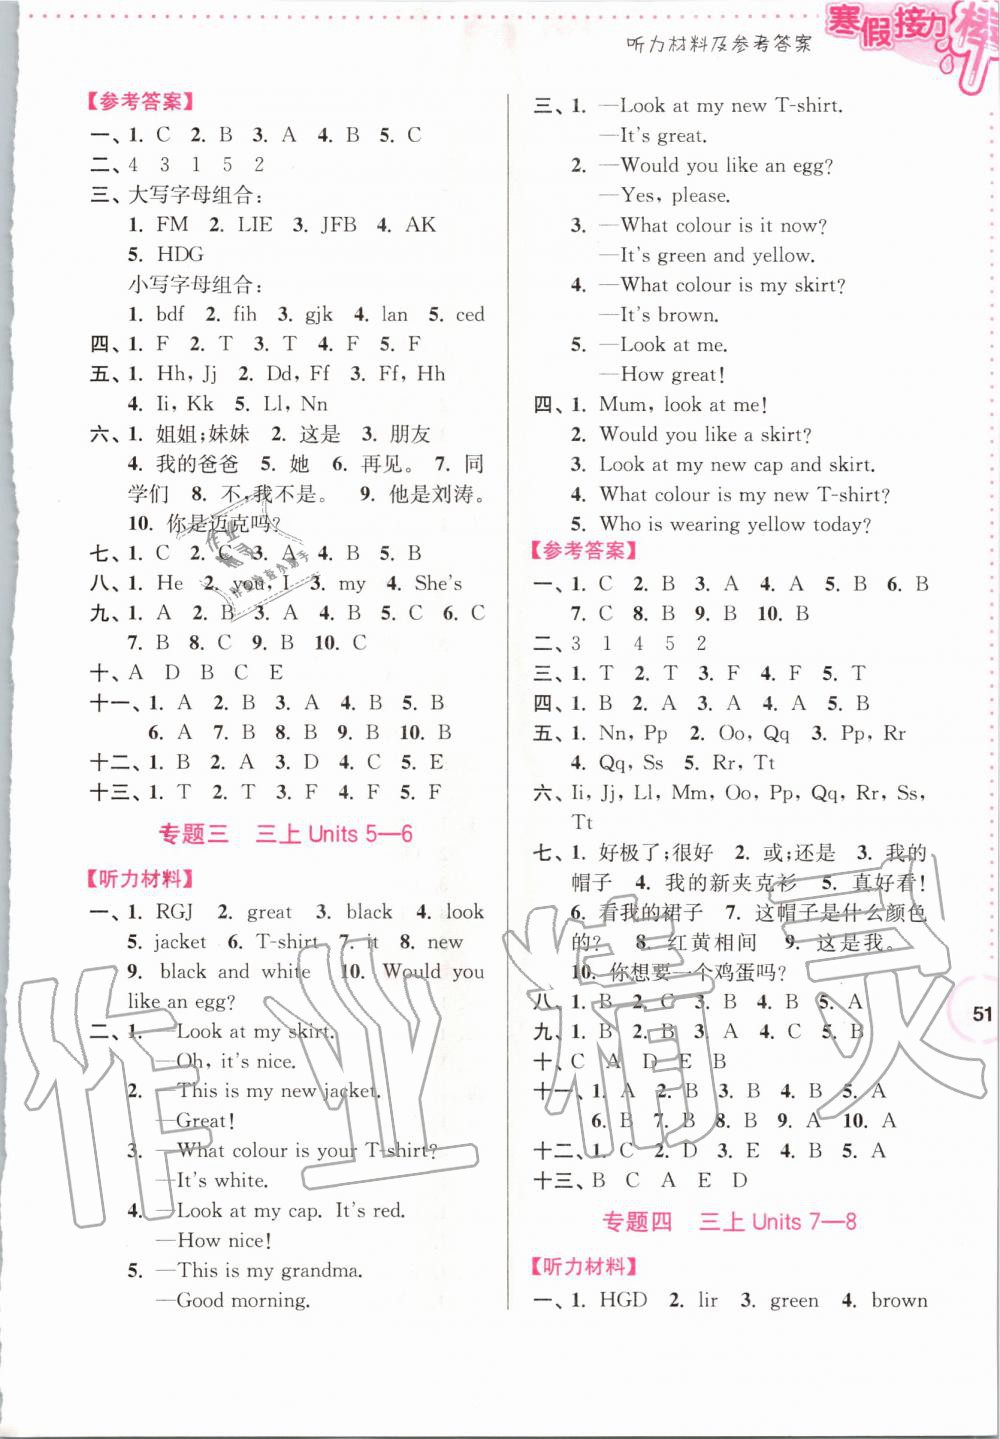 寒假接力棒
听力材料及参考答案
【参考答案】
一、1. C 2. B 3. A 4. B 5. C
二、4 3 1 5 2
三、大写字母组合:
1. FM 2. LIE 3. JFB 4. AK
5. HDG
小写字母组合:
1. bdf 2. fih 3. gjk 4. lan 5. ced
四、1. F 2. T 3. T 4. F 5. F
五、1. Hh, Jj 2. Dd, Ff 3. Ff, Hh
4. Ii, Kk 5. Ll, Nn
六、1. 姐姐;妹妹 2. 这是 3. 朋友
4. 我的爸爸 5. 她 6. 再见。 7. 同
学们 8. 不,我不是。 9. 他是刘涛。
10. 你是迈克吗?
七、1. C 2. C 3. A 4. B 5. B
八、1. He 2. you, I 3. my 4. She's
九、1. A 2. B 3. A 4. B 5. C 6. C
7. B 8. C 9. B 10. C
十、A D B C E
十一、1. A 2. B 3. A 4. B 5. B
6. A 7. B 8. B 9. B 10. B
十二、1. B 2. A 3. D 4. C 5. E
十三、1. T 2. T 3. F 4. F 5. F
专题三 三上 Units 5—6
【听力材料】
一、1. RGJ 2. great 3. black 4. look
5. jacket 6. T-shirt 7. it 8. new
9. black and white 10. Would you
like an egg?
二、1. —Look at my skirt.
—Oh, it's nice.
2. —This is my new jacket.
—Great!
3. —What colour is your T-shirt?
—It's white.
4. —Look at my cap. It's red.
—How nice!
5. —This is my grandma.
—Good morning.
三、1. —Look at my new T-shirt.
—It's great.
2. —Would you like an egg?
—Yes, please.
3. —What colour is it now?
—It's green and yellow.
4. —What colour is my skirt?
—It's brown.
5. —Look at me.
—How great!
四、1. Mum, look at me!
2. Would you like a skirt?
3. Look at my new cap and skirt.
4. What colour is my new T-shirt?
5. Who is wearing yellow today?
【参考答案】
一、1. C 2. B 3. A 4. A 5. B 6. B
7. C 8. B 9. B 10. B
二、3 1 4 5 2
三、1. T 2. T 3. F 4. F 5. T
四、1. B 2. A 3. A 4. A 5. B
五、1. Nn, Pp 2. Oo, Qq 3. Pp, Rr
4. Qq, Ss 5. Rr, Tt
六、Ii, Jj, Ll, Mm, Oo, Pp, Qq, Rr, Ss,
Tt
七、1. 好极了;很好 2. 或;还是 3. 我的
帽子 4. 我的新夹克衫 5. 真好看!
6. 看我的裙子 7. 这帽子是什么颜色
的? 8. 红黄相间 9. 这是我。
10. 你想要一个鸡蛋吗?
八、1. B 2. C 3. B 4. B 5. A
九、1. B 2. B 3. A 4. C 5. B
十、C A D E B
十一、1. A 2. B 3. B 4. B 5. A
6. B 7. B 8. B 9. A 10. A
十二、1. C 2. D 3. E 4. B 5. A
十三、B C A E D
专题四 三上 Units 7—8
【听力材料】
一、1. HGD 2. lir 3. green 4. brown
51
作业精灵